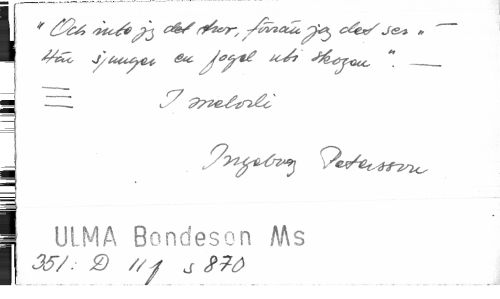 "Och inte jag det tror, förrän jag det ser" —
Här sjunger en fogel uti skogen". —
I melodi
Ingeborg Petersson
ULMA Bondeson Ms
351: D 11 s 870